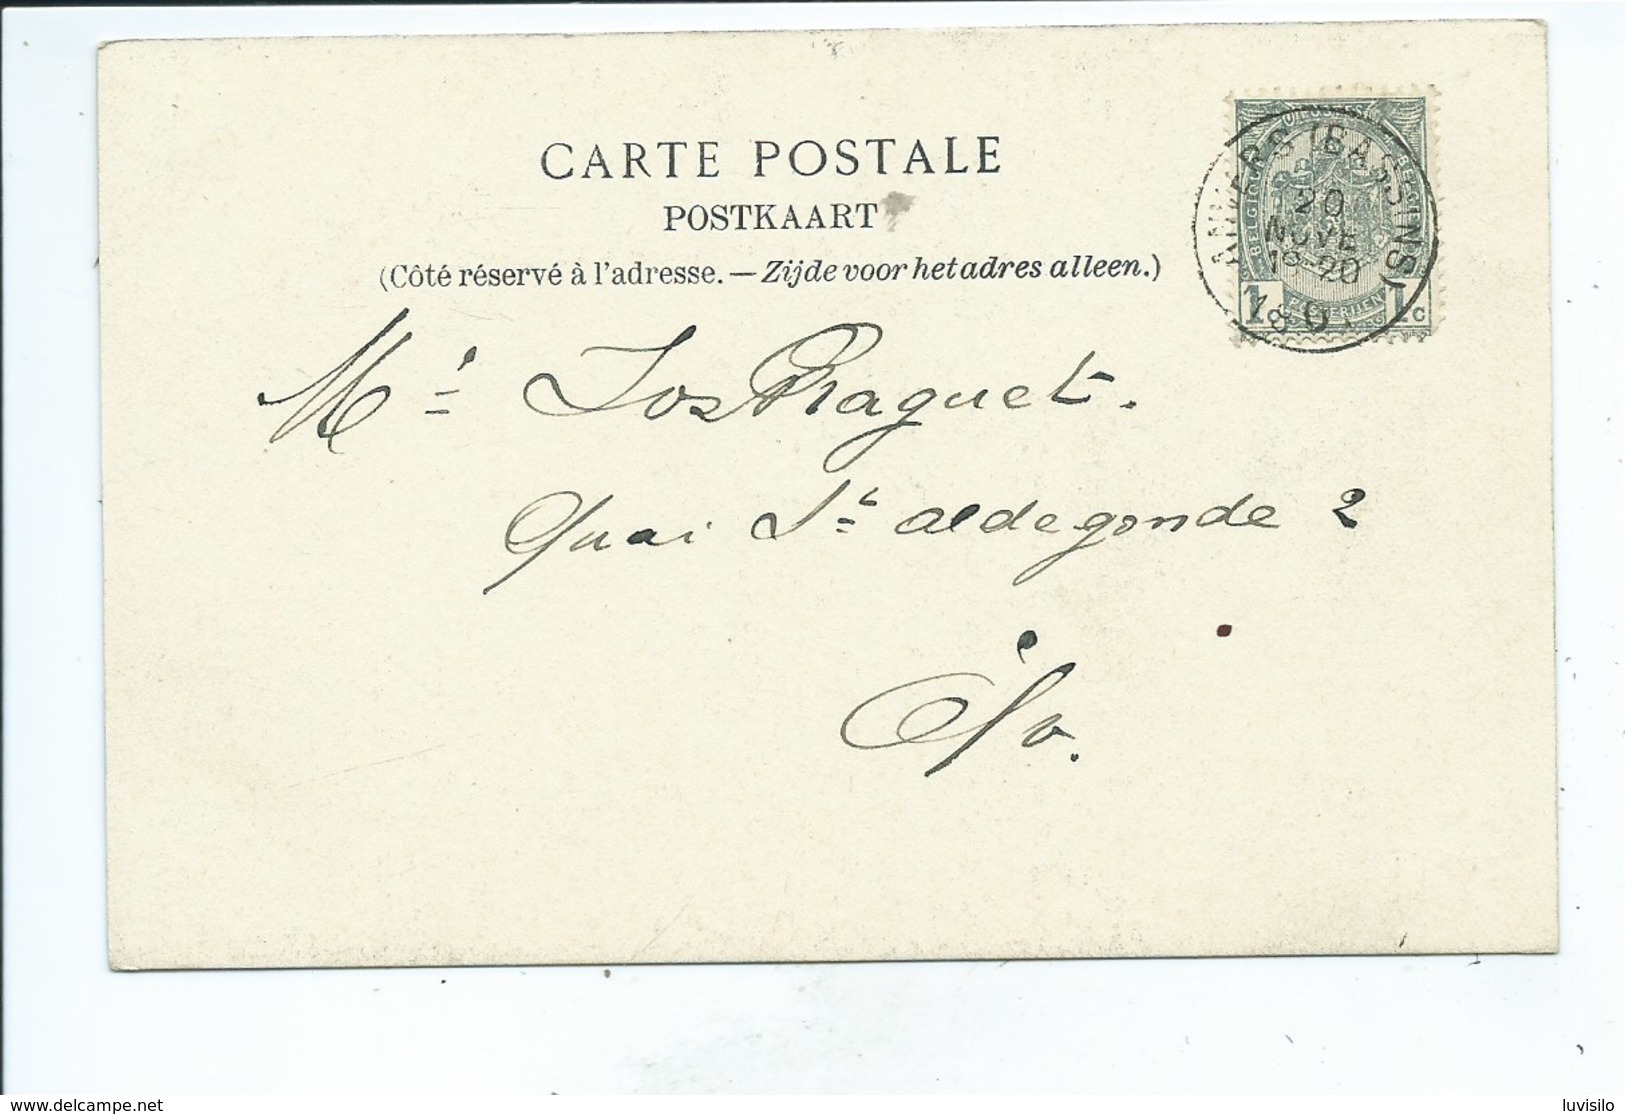 CARTE POSTALE
POSTKAART
(Côté réservé à l'adresse. — Zijde voor het adres alleen.)
ANVERS (BASSINS)
20
NOVE
BELGIQUE
1 1c
Mr Jos Phaguet.
Quai St aldegonde 2
www.delcampe.net
luvisilo